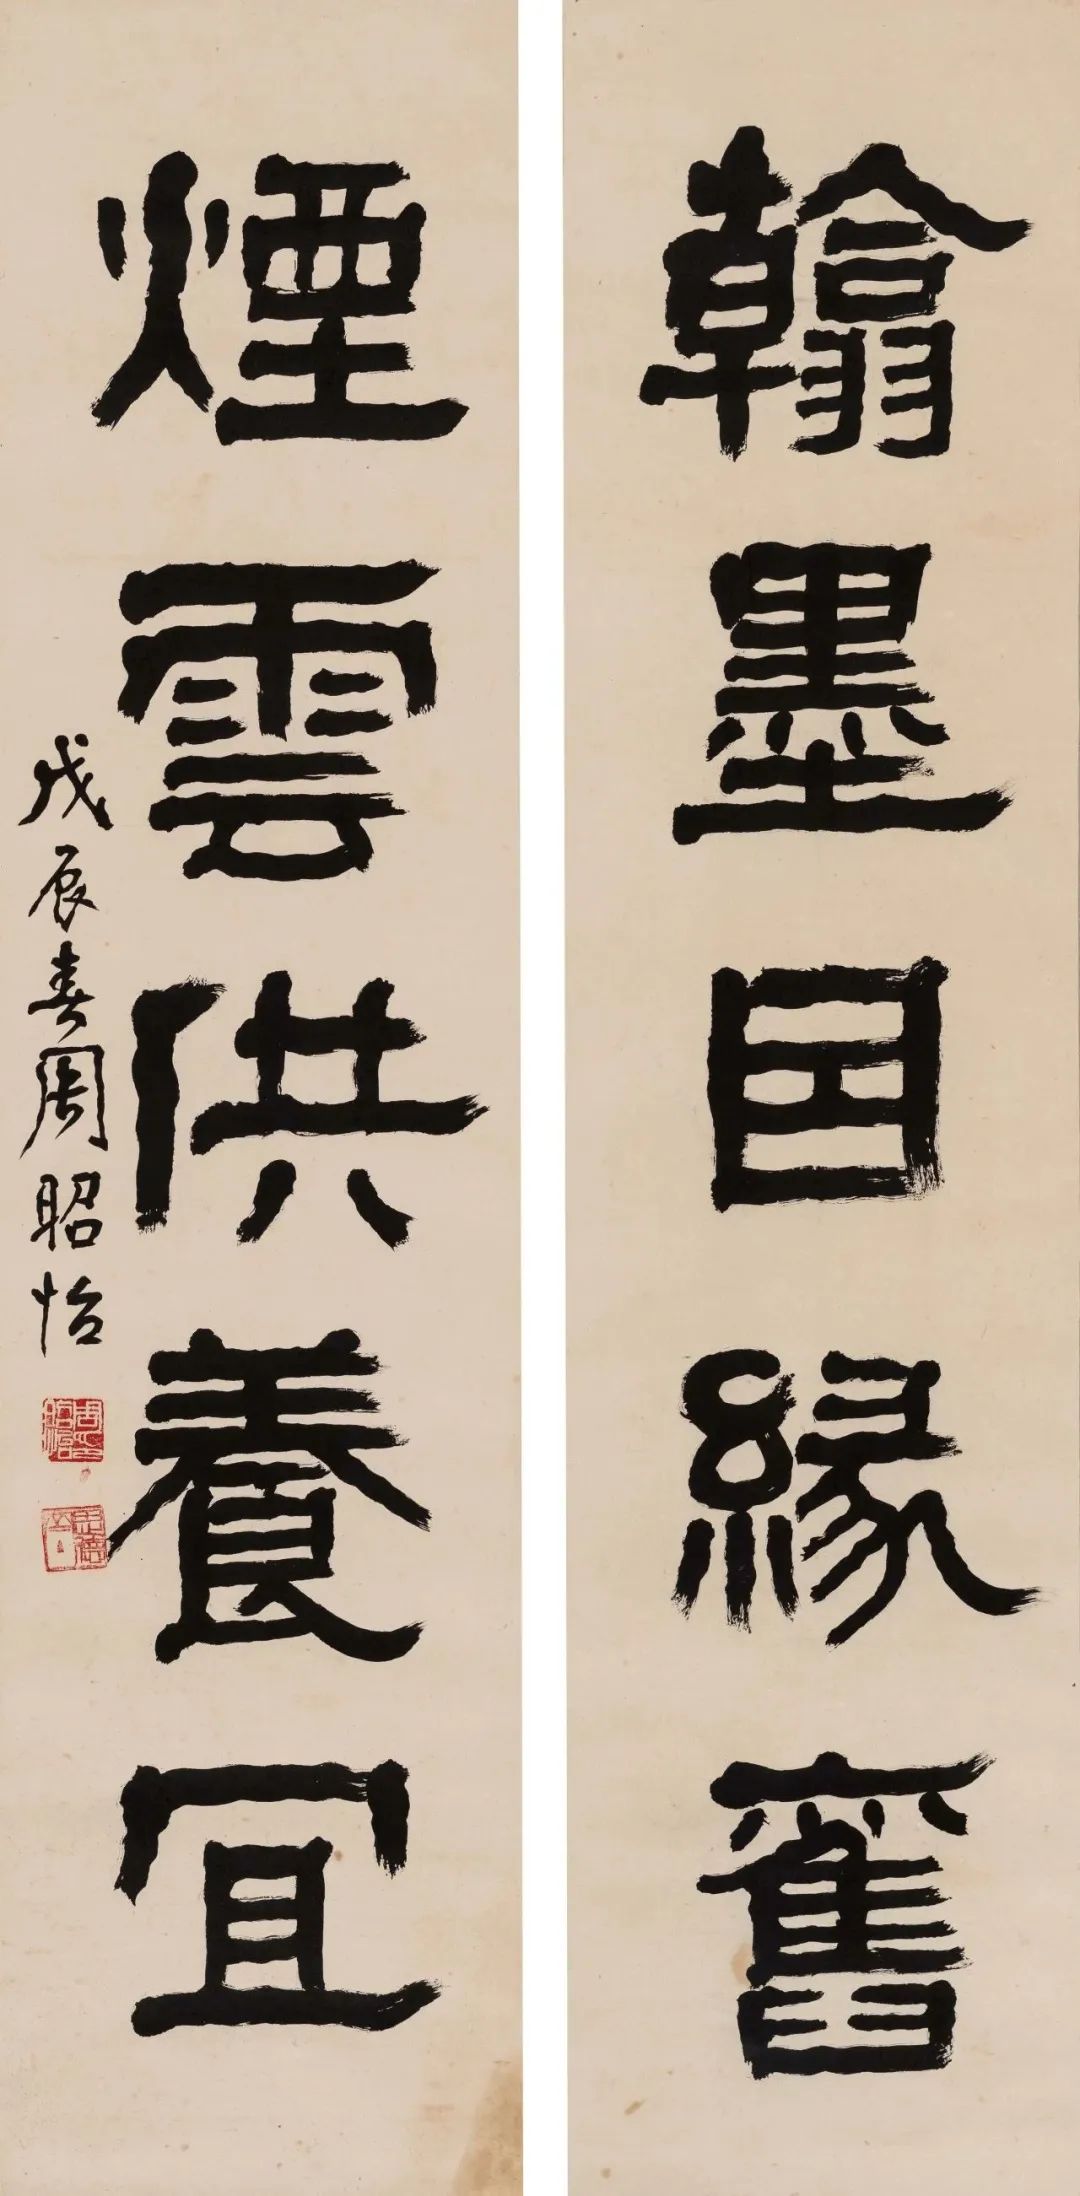 翰墨因緣舊
煙雲供養宜
戊辰春周昭怡
周昭怡印